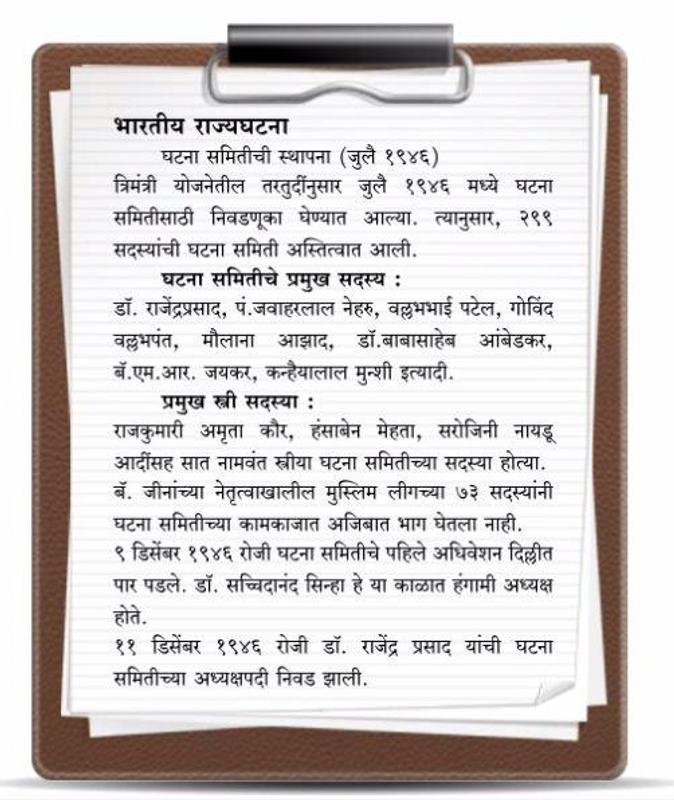 भारतीय राज्यघटना
घटना समितीची स्थापना (जुलै १९४६)
त्रिमंत्री योजनेतील तरतुदींनुसार जुलै १९४६ मध्ये घटना
समितीसाठी निवडणूका घेण्यात आल्या. त्यानुसार, २९९
सदस्यांची घटना समिती अस्तित्वात आली.
घटना समितीचे प्रमुख सदस्य :
डॉ. राजेंद्रप्रसाद, पं.जवाहरलाल नेहरु, वल्लभभाई पटेल, गोविंद
वल्लभपंत, मौलाना आझाद, डॉ.बाबासाहेब आंबेडकर,
बॅ.एम.आर. जयकर, कन्हैयालाल मुन्शी इत्यादी.
प्रमुख स्त्री सदस्या :
राजकुमारी अमृता कौर, हंसाबेन मेहता, सरोजिनी नायडू
आदींसह सात नामवंत स्त्रीया घटना समितीच्या सदस्या होत्या.
बॅ. जीनांच्या नेतृत्वाखालील मुस्लिम लीगच्या ७३ सदस्यांनी
घटना समितीच्या कामकाजात अजिबात भाग घेतला नाही.
९ डिसेंबर १९४६ रोजी घटना समितीचे पहिले अधिवेशन दिल्लीत
पार पडले. डॉ. सच्चिदानंद सिन्हा हे या काळात हंगामी अध्यक्ष
होते.
११ डिसेंबर १९४६ रोजी डॉ. राजेंद्र प्रसाद यांची घटना
समितीच्या अध्यक्षपदी निवड झाली.